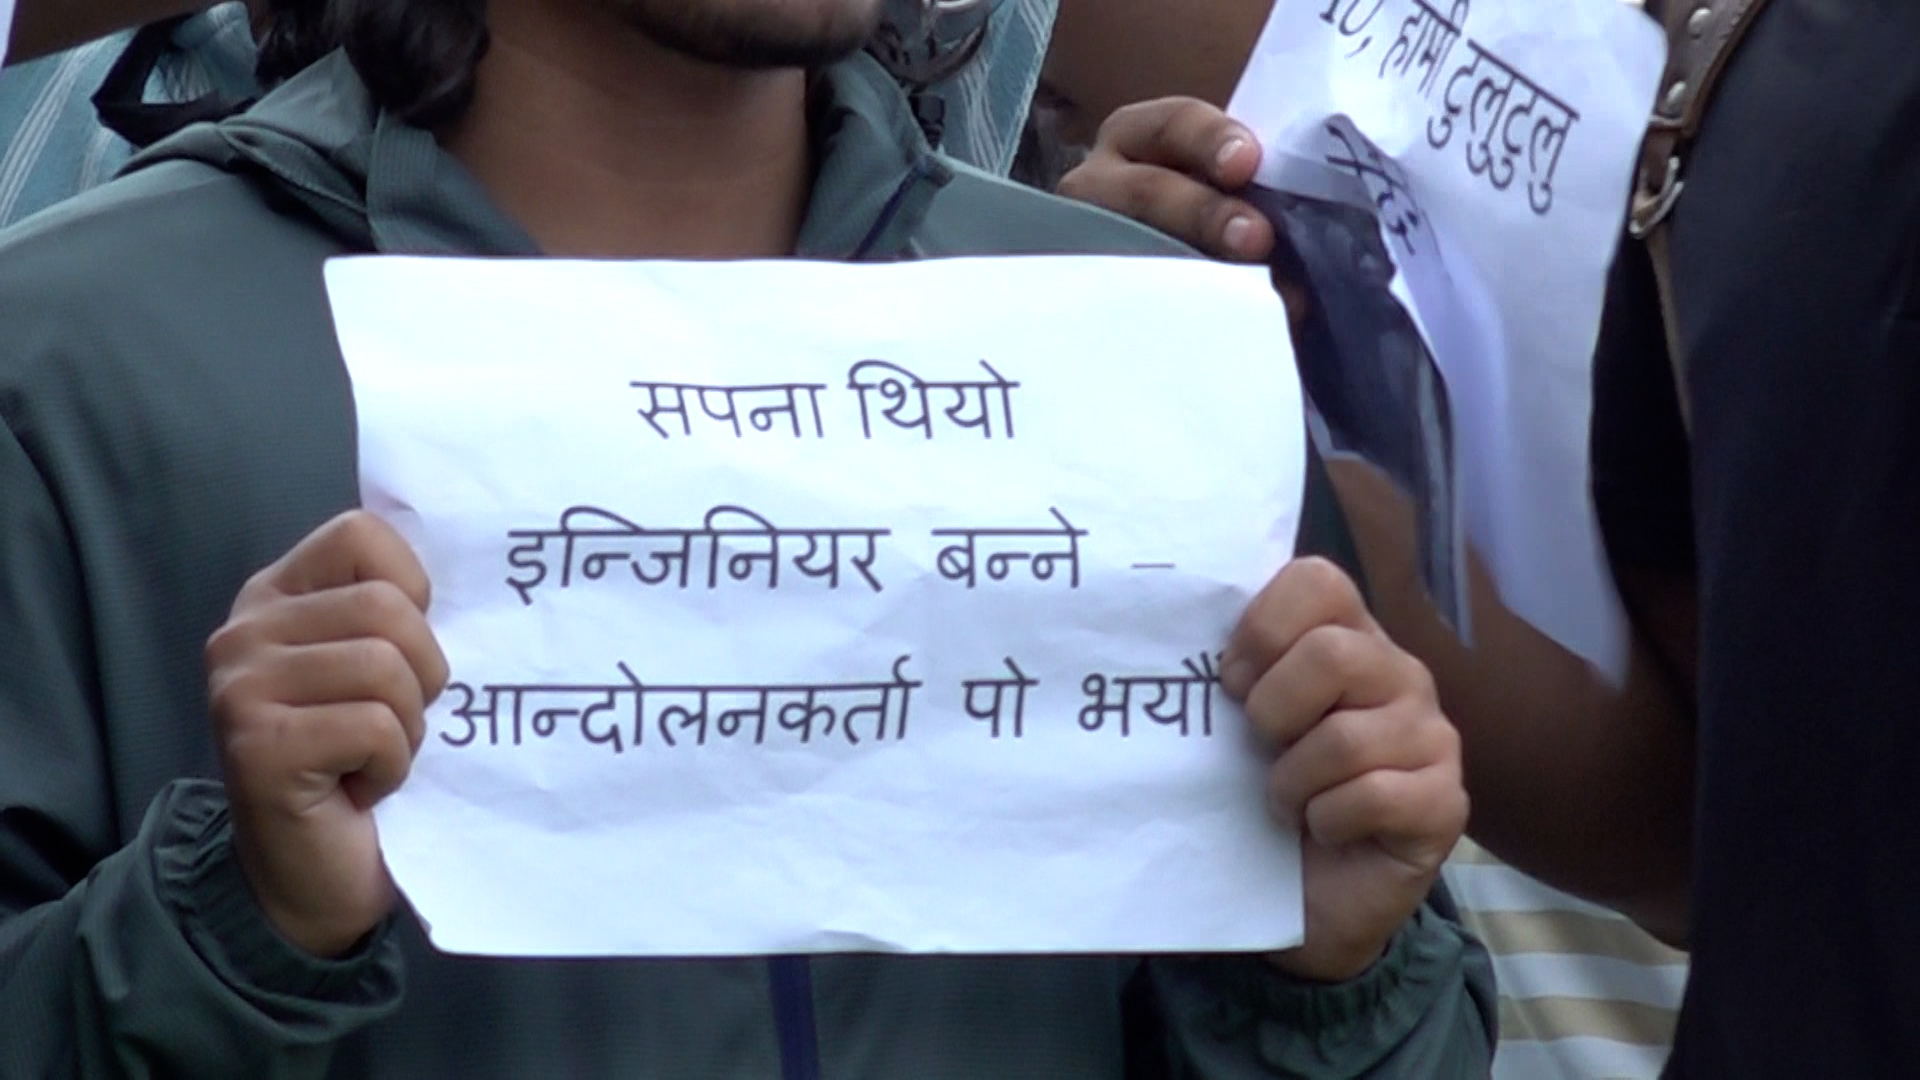 सपना थियो
इन्जिनियर बन्ने –
आन्दोलनकर्ता पो भयौं
हामी टुलुटुलु